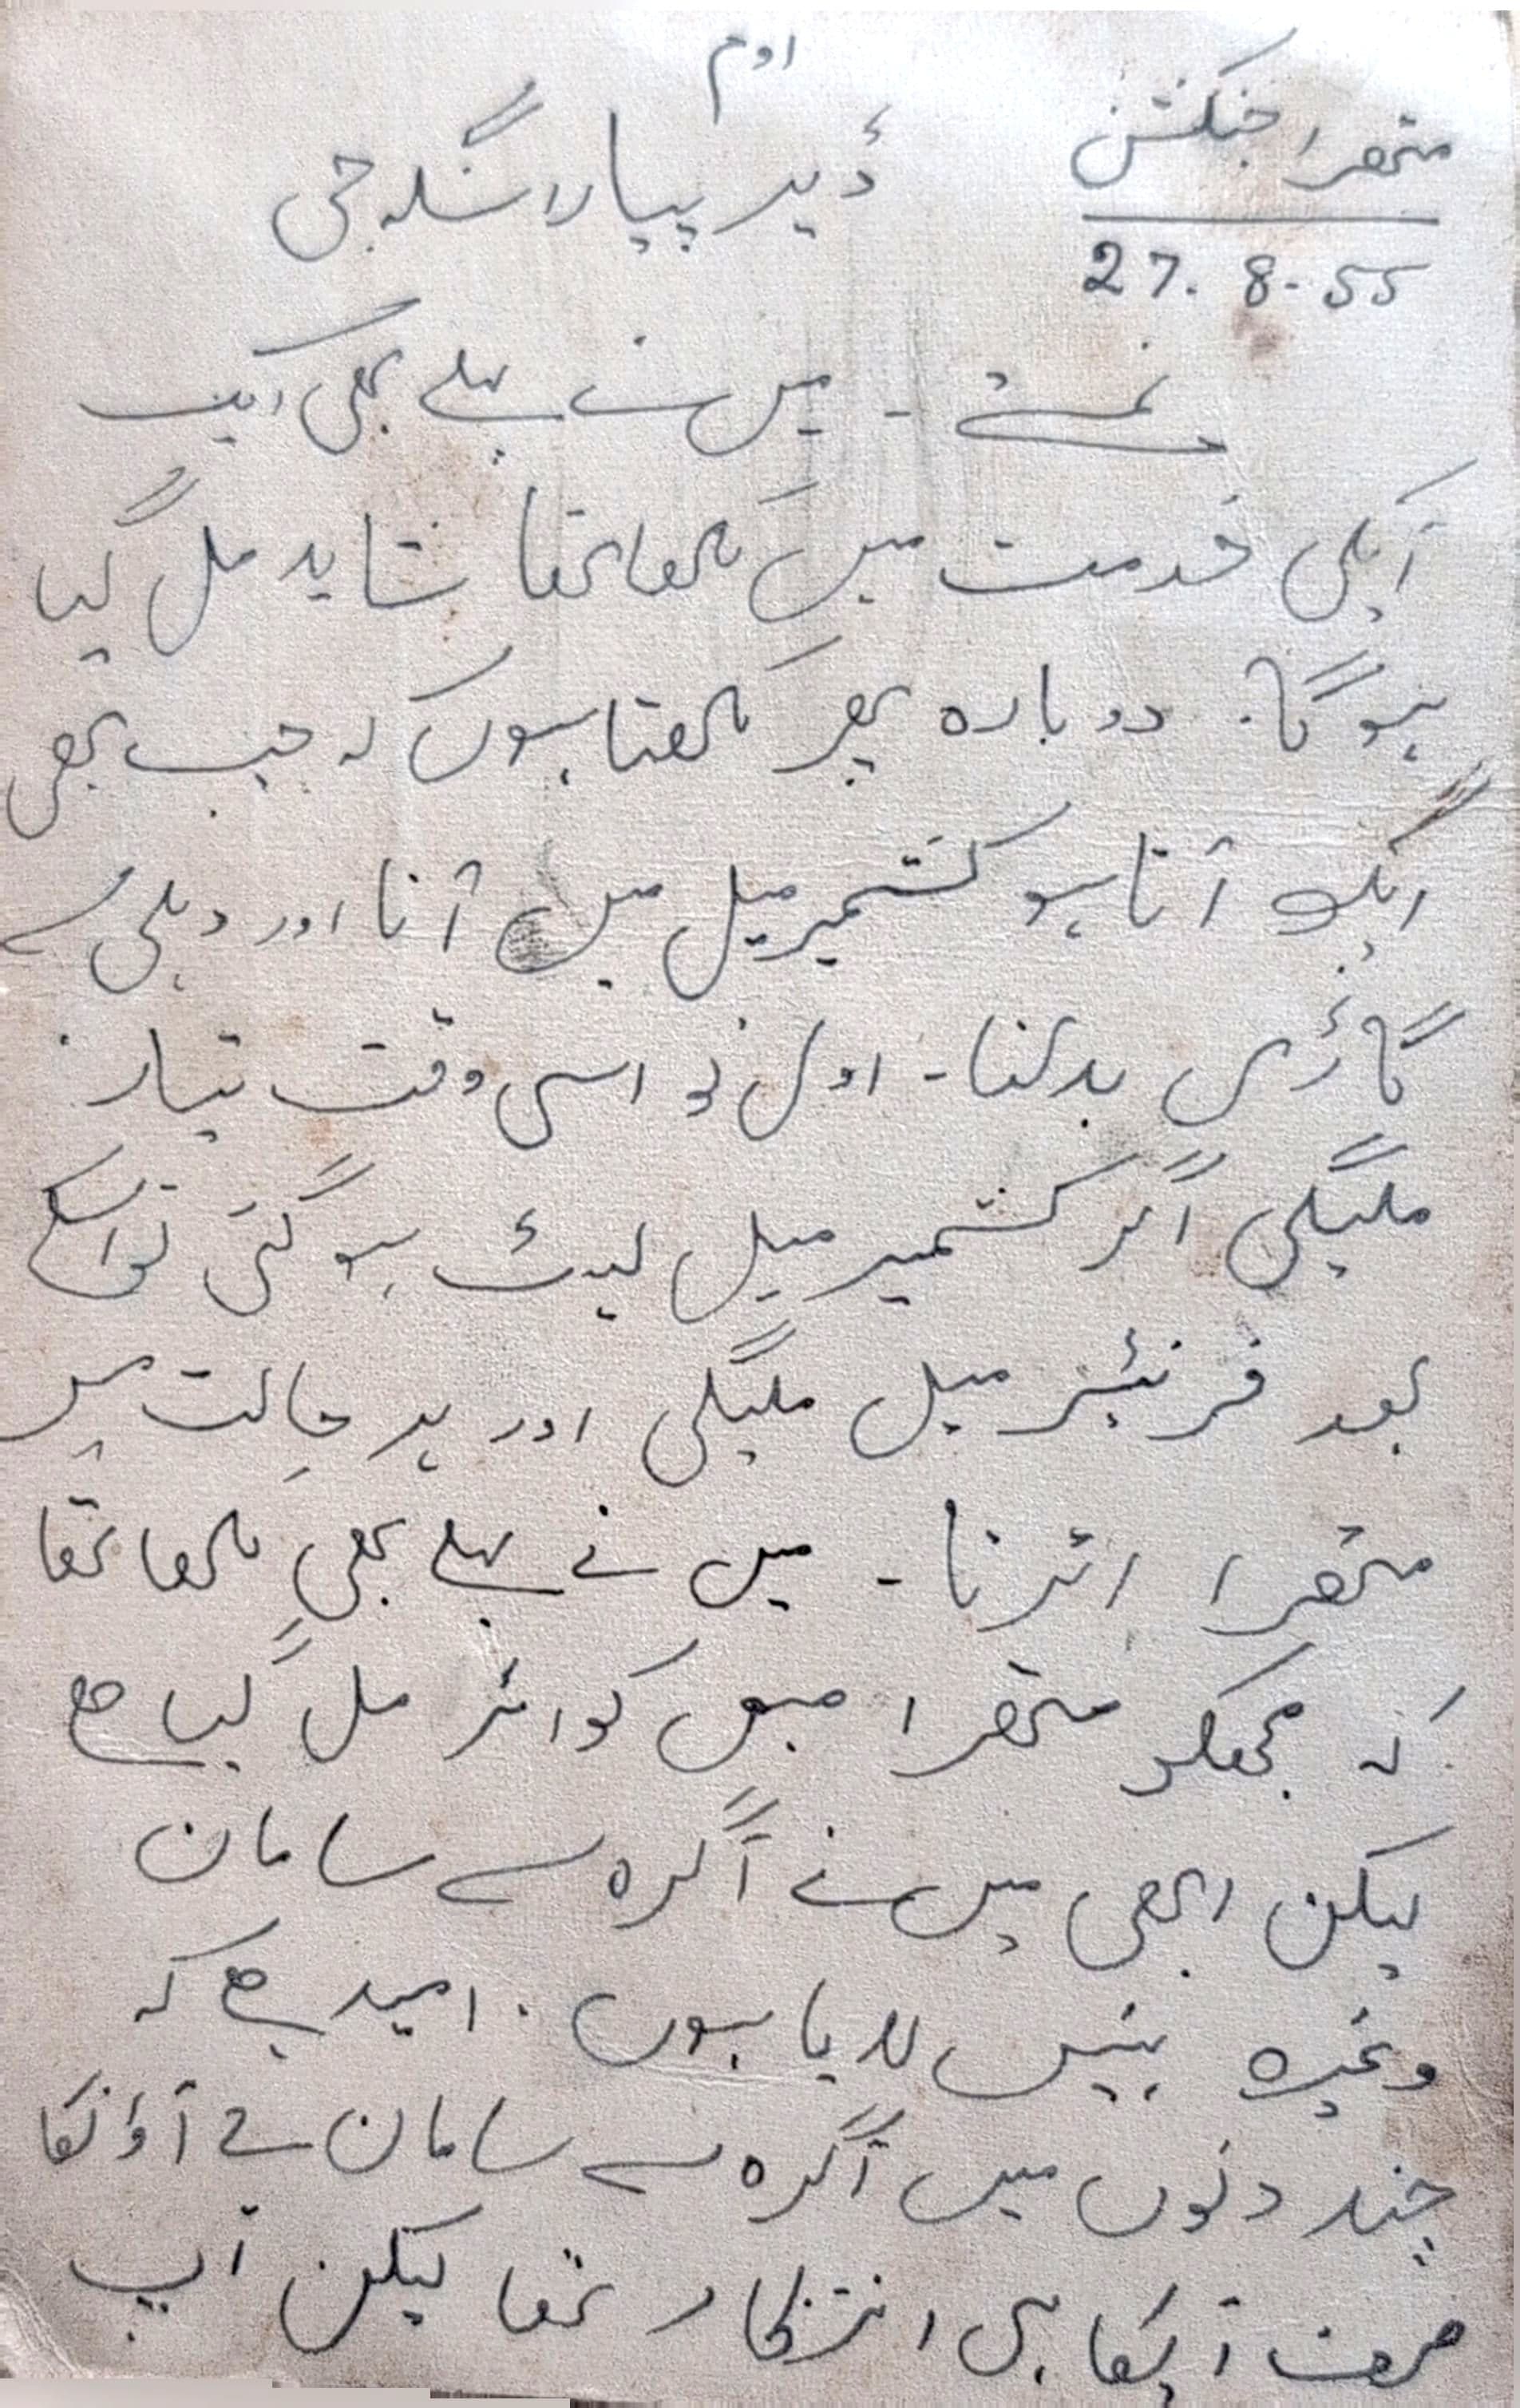 اوم
متھرا جنکشن
27.8.55
ڈیر پیارا سنگھ جی
نمستے - میں نے پہلے بھی ایک
آپکی خدمت میں لکھا تھا شاید مل گیا
ہوگا. دوبارہ پھر لکھتا ہوں کہ جب بھی
آنا ہو کشمیر میل میں آنا اور دہلی سے
گاڑی بدلنا - اول تو اسی وقت تیار
ملیگی اگر کشمیر میل لیٹ ہو گئی تو اسکے
بعد فرنٹیر میل ملیگی اور ہر حالت میں
متھرا اترنا - میں نے پہلے بھی لکھا تھا
کہ مجھکو متھرا میں کواٹر مل گیا ہے
لیکن ابھی میں نے آگرہ سے سامان
وغیرہ نہیں لایا ہوں. امید ہے کہ
چند دنوں میں آگرہ سے سامان لے آؤنگا
صرف آپکا ہی انتظار تھا لیکن آپ